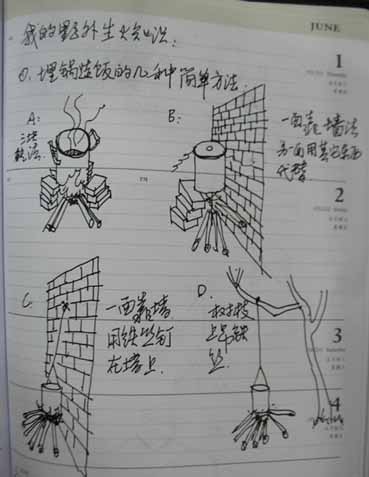 JUNE
我的野外生火
①. 埋锅造饭的几种简单方法.
A:
B:
一面靠墙法
另一面用其它东西
代替
C.
一面靠墙
用铁丝钉
在墙上.
D.
树枝
上吊铁
丝.
1
2
3
4